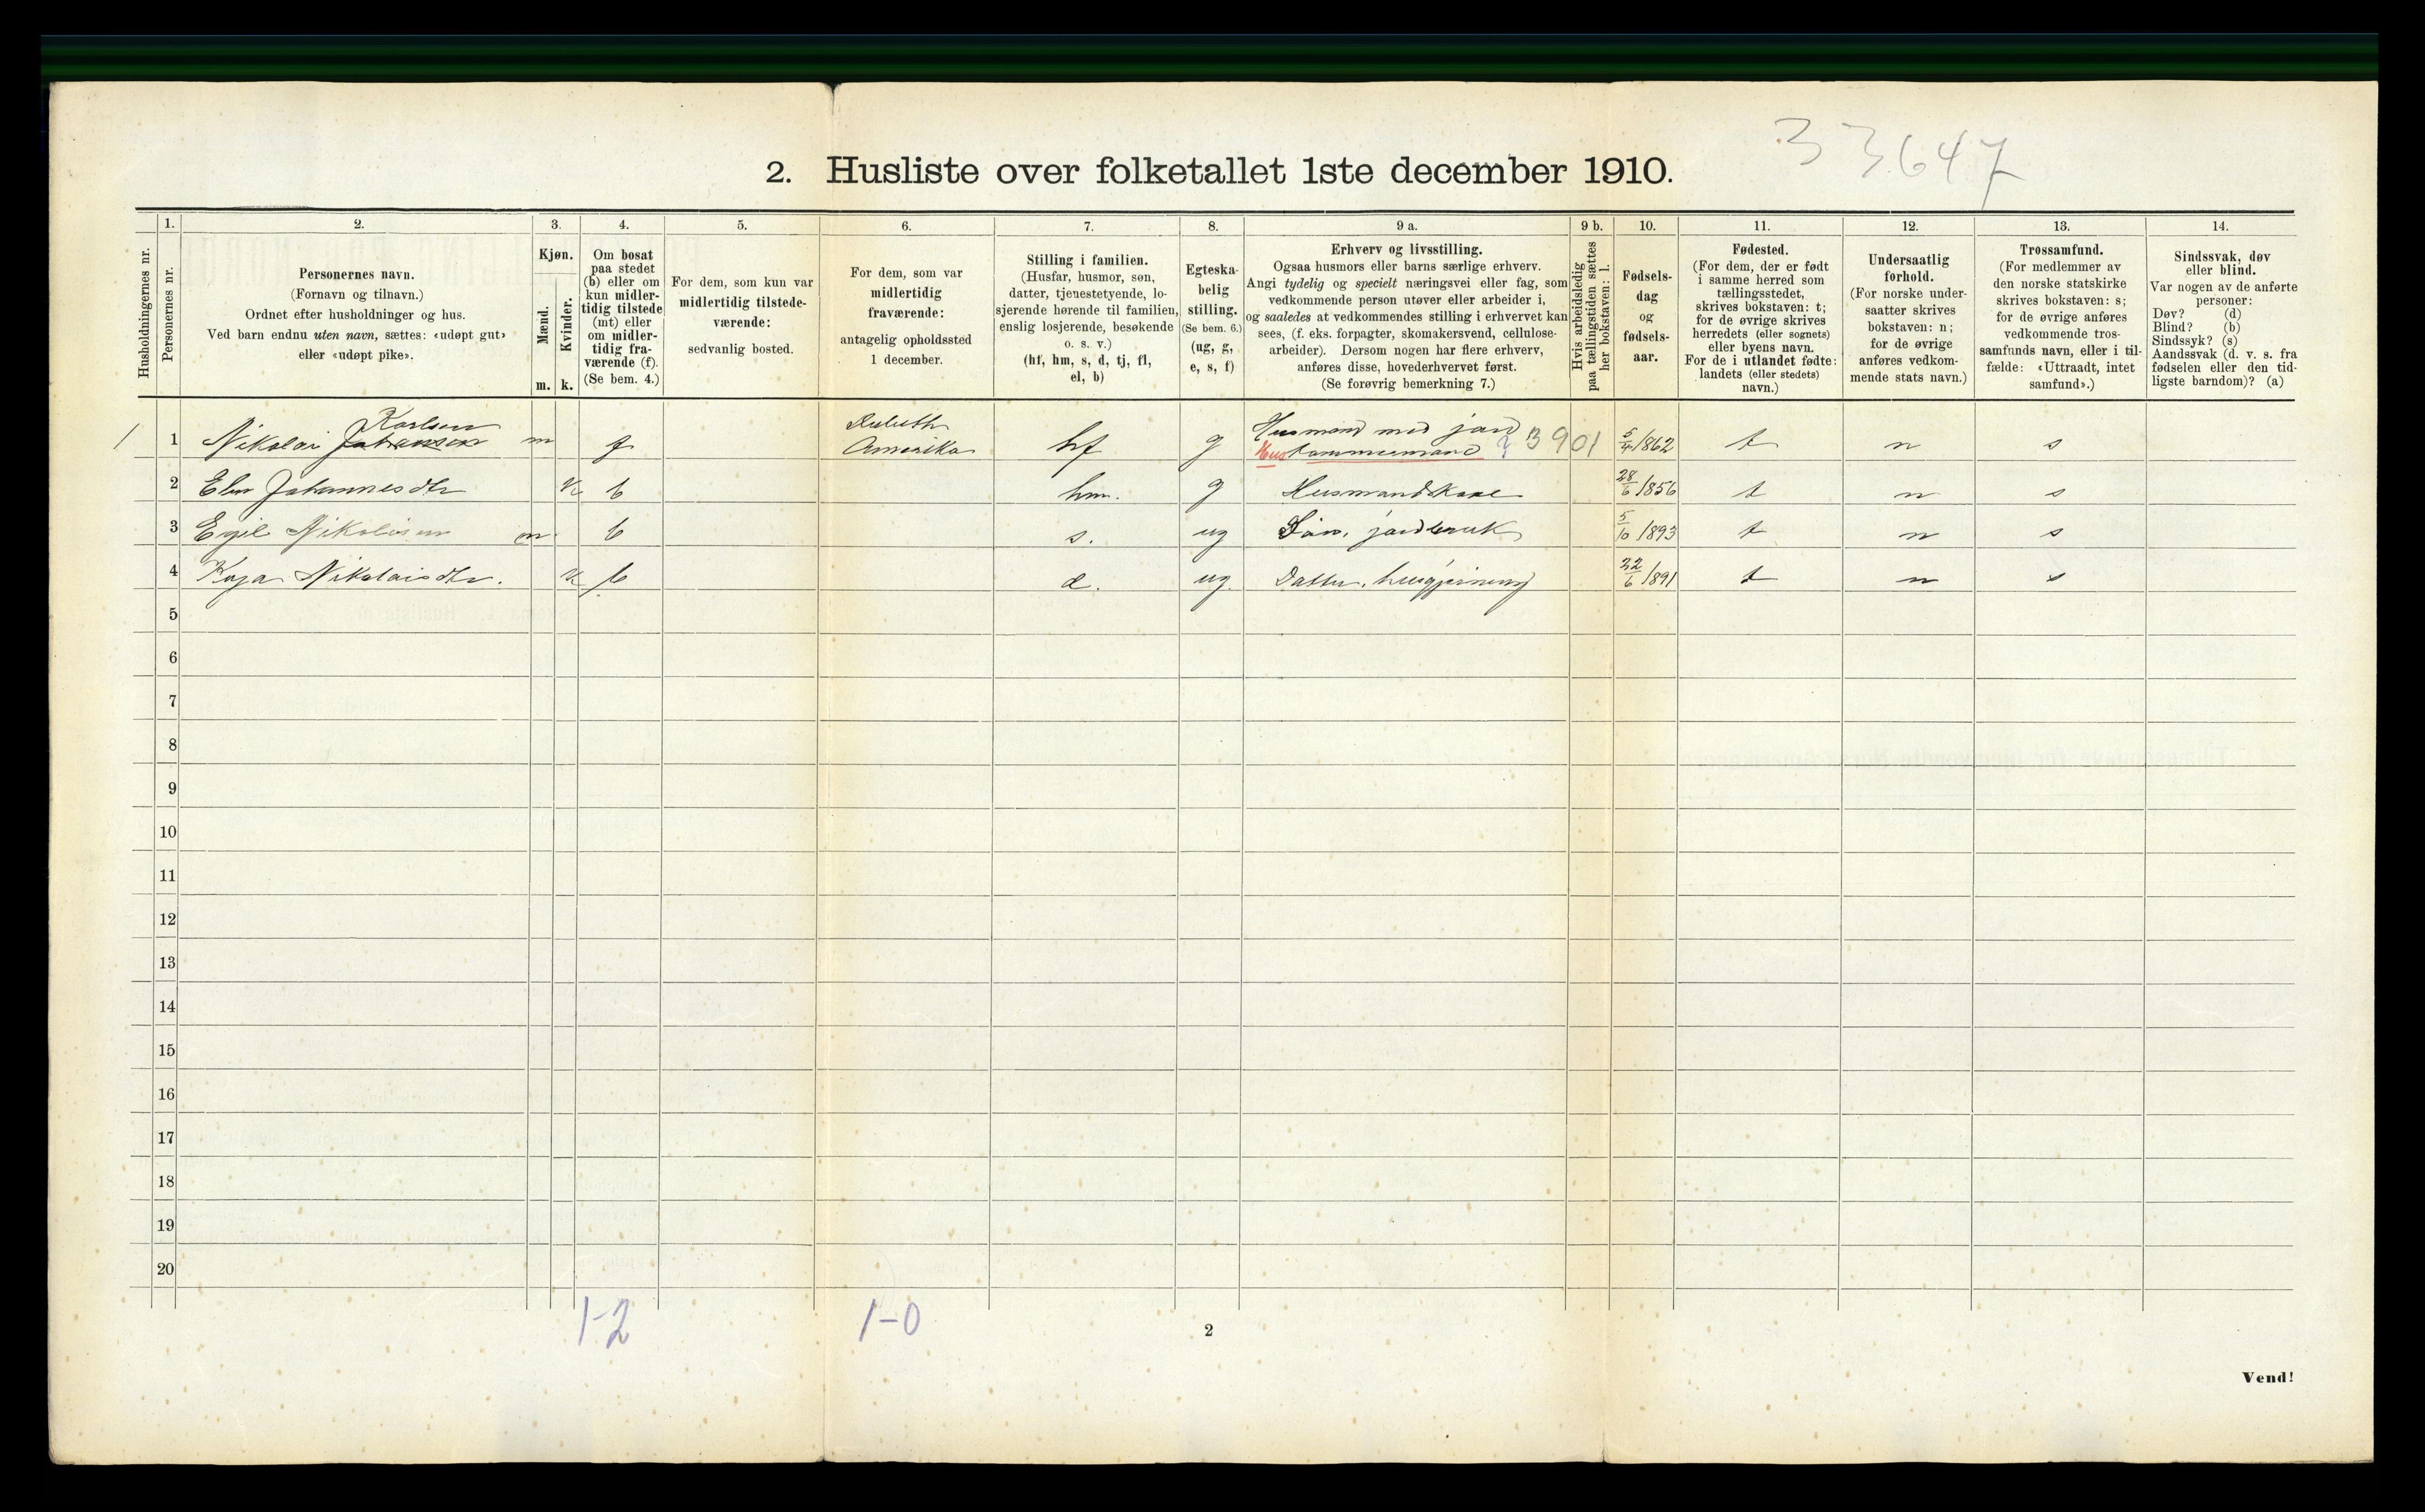 33647
2. Husliste over folketallet 1ste december 1910.
1. 2. 3. 4. 5. 6. 7. 8. 9 a. 9 b. 10. 11. 12. 13. 14.
Husholdningernes nr.
Personernes nr.
Personernes navn.
(Fornavn og tilnavn.)
Ordnet efter husholdninger og hus.
Ved barn endnu uten navn, sættes: «udøpt gut»
eller «udøpt pike».
Kjøn.
Mænd.
Kvinder.
m. k.
Om bosat
paa stedet
(b) eller om
kun midler-
tidig tilstede
(mt) eller
om midler-
tidig fra-
værende (f).
(Se bem. 4.)
For dem, som kun var
midlertidig tilstede-
værende:
sedvanlig bosted.
For dem, som var
midlertidig
fraværende:
antagelig opholdssted
1 december.
Stilling i familien.
(Husfar, husmor, søn,
datter, tjenestetyende, lo-
sjerende hørende til familien,
enslig losjerende, besøkende
o. s. v.)
(hf, hm, s, d, tj, fl,
el, b)
Egteska-
belig
stilling.
(Se bem. 6.)
(ug, g,
e, s, f)
Erhverv og livsstilling.
Ogsaa husmors eller barns særlige erhverv.
Angi tydelig og specielt næringsvei eller fag, som
vedkommende person utøver eller arbeider i,
og saaledes at vedkommendes stilling i erhvervet kan
sees, (f. eks. forpagter, skomakersvend, cellulose-
arbeider). Dersom nogen har flere erhverv,
anføres disse, hovederhvervet først.
(Se forøvrig bemerkning 7.)
Hvis arbeidsledig
paa tællingstiden sættes
her bokstaven: l.
Fødsels-
dag
og
fødsels-
aar.
Fødested.
(For dem, der er født
i samme herred som
tællingsstedet,
skrives bokstaven: t;
for de øvrige skrives
herredets (eller sognets)
eller byens navn.
For de i utlandet fødte:
landets (eller stedets)
navn.)
Undersaatlig
forhold.
(For norske under-
saatter skrives
bokstaven: n;
for de øvrige
anføres vedkom-
mende stats navn.)
Trossamfund.
(For medlemmer av
den norske statskirke
skrives bokstaven: s;
for de øvrige anføres
vedkommende tros-
samfunds navn, eller i til-
fælde: «Uttraadt, intet
samfund».)
Sindssvak, døv
eller blind.
Var nogen av de anførte
personer:
Døv? (d)
Blind? (b)
Sindssyk? (s)
Aandssvak (d. v. s. fra
fødselen eller den tid-
ligste barndom)? (a)
Karlsen Husmand med jord
1 1 Nikolai Johansen m f Amerika hf g 3901 5/4 1862 t n s
2 Johannesdtr k b hm. g Husmandskone 28/6 1856 t n s
3 Egil m b s. ug Søn, jordbruk 5/10 1893 t n s
4 Kaja Nikolaisdtr. k b d. ug. Datter, husgjerning 22/6 1891 t n s
5
6
7
8
9
10
11
12
13
14
15
16
17
18
19
20
1-2 1-0
2
Vend!